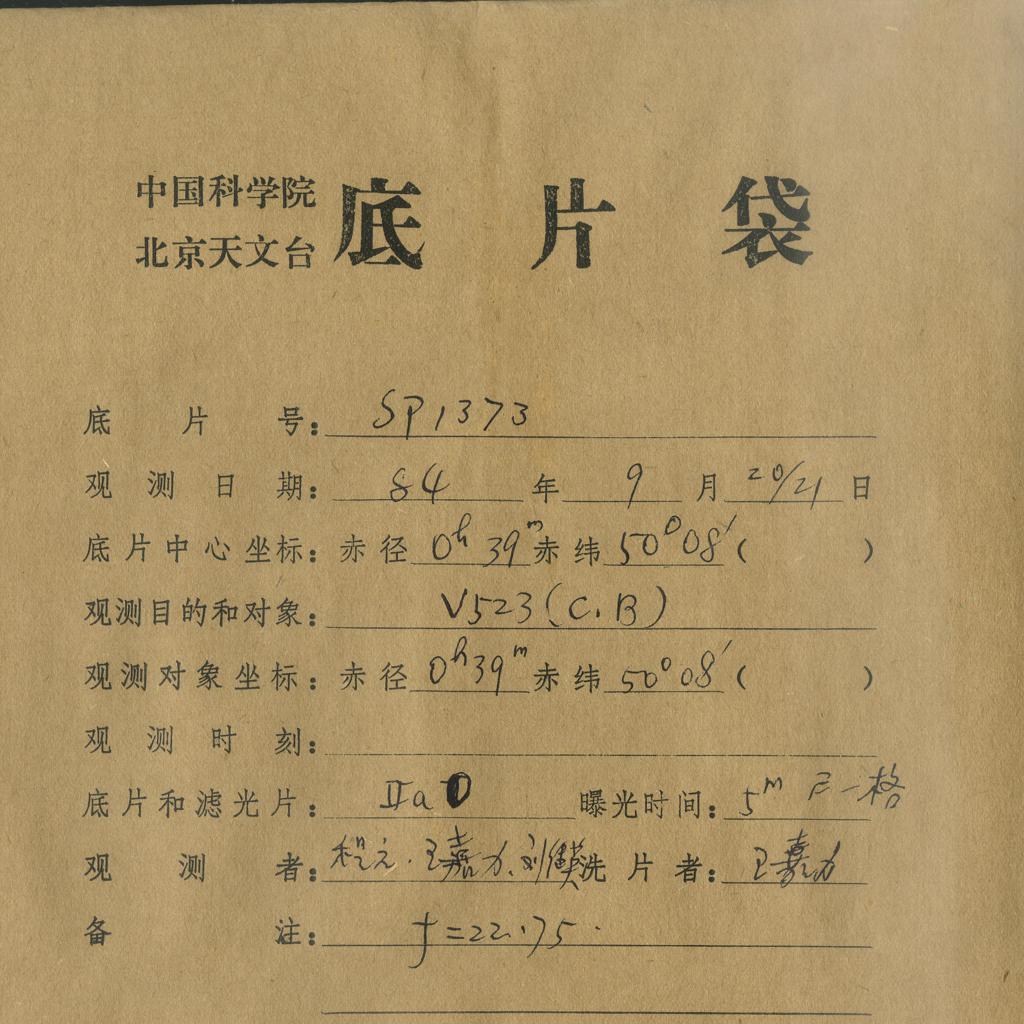 中国科学院
北京天文台
底片袋
底片号：SP1373
观测日期：84年9月20/21日
底片中心坐标：赤径0h39m赤纬50°08′(  )
观测目的和对象：V523(C.B)
观测对象坐标：赤径0h39m赤纬50°08′(  )
观测时刻：
底片和滤光片：IIaO 曝光时间：5m 一格
观测者：程元.王嘉力.刘 洗片者：王嘉力
备注：f=22.75.